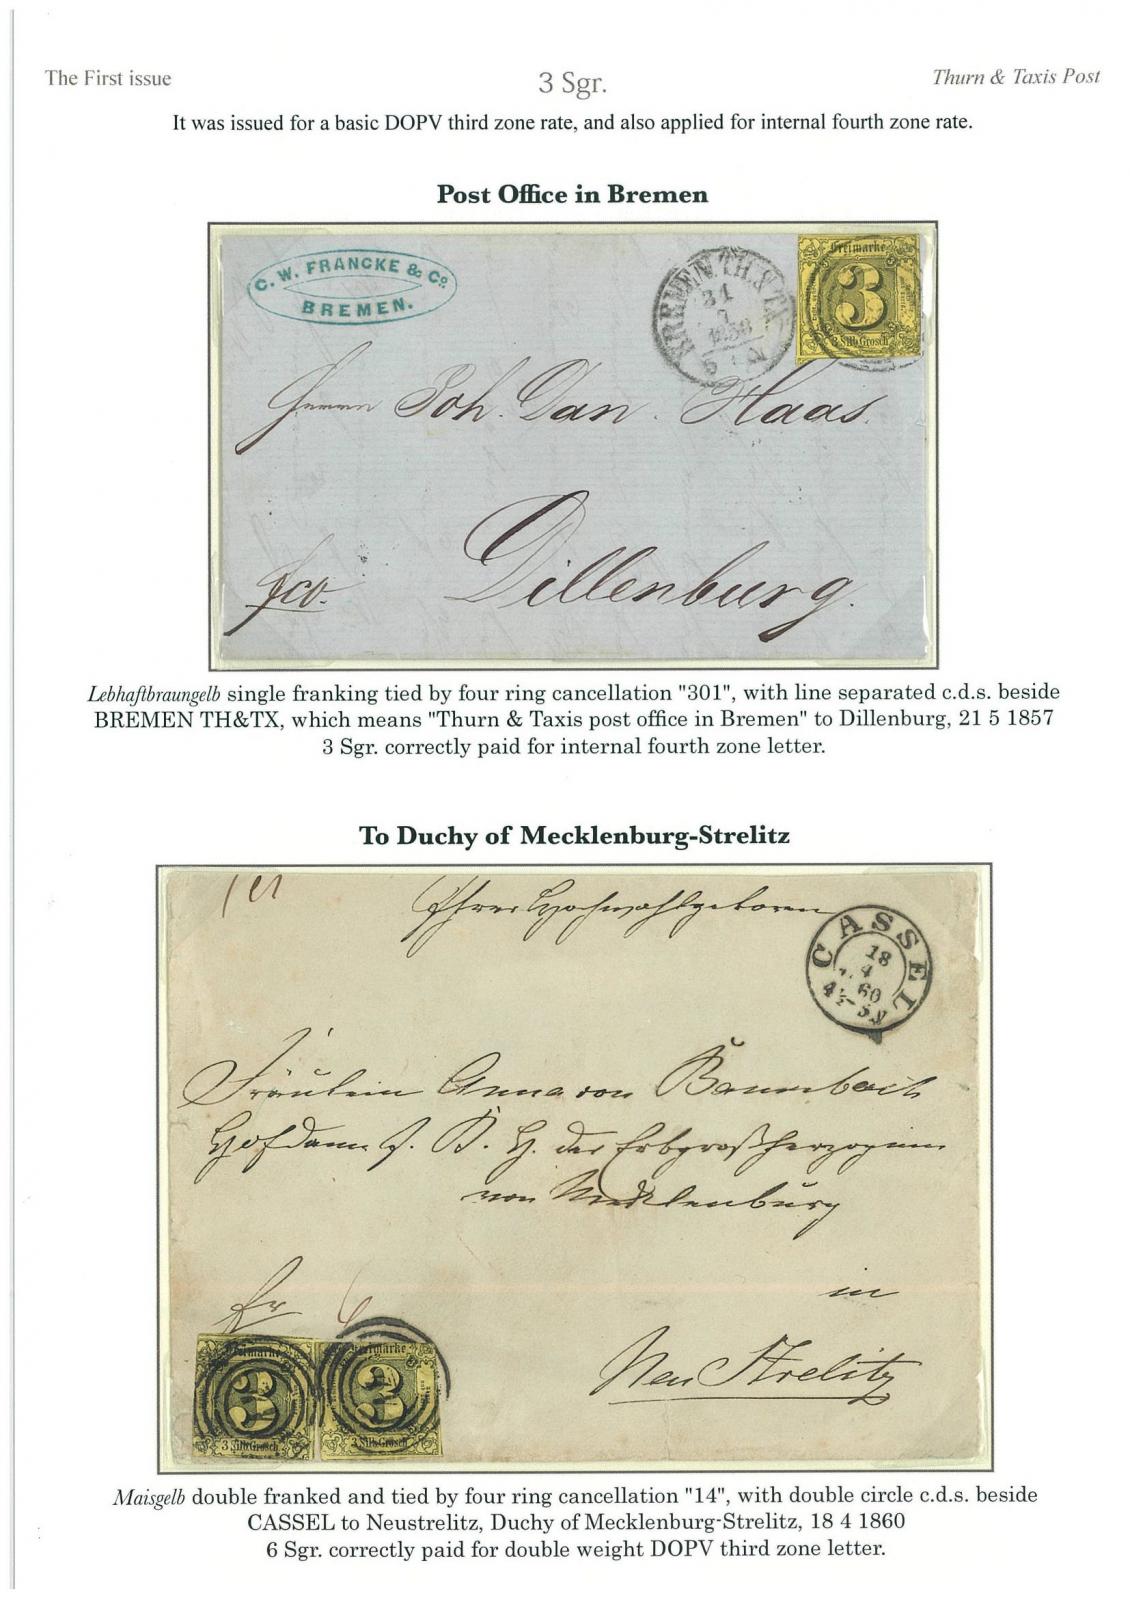 The First issue
3 Sgr.
Thurn & Taxis Post
It was issued for a basic DOPV third zone rate, and also applied for internal fourth zone rate.
Post Office in Bremen
C. W. FRANCKE & Co.
BREMEN.
BREMEN.TH.&TX.
Freimarke
3
3 Silb.Grosch
Herrn Joh. Dan. Haas.
fco.
Dillenburg.
Lebhaftbraungelb single franking tied by four ring cancellation "301", with line separated c.d.s. beside
BREMEN TH&TX, which means "Thurn & Taxis post office in Bremen" to Dillenburg, 21 5 1857
3 Sgr. correctly paid for internal fourth zone letter.
To Duchy of Mecklenburg-Strelitz
Ihrer Hochwohlgeboren
CASSEL
18
4
60
Fräulein Anna von Baumbach
Hofdame I. K. H. der Erbgroßherzogin
von Mecklenburg
in
fr 6
Neu Strelitz
Freimarke
3
3 Silb.Grosch
Freimarke
3
3 Silb.Grosch
Maisgelb double franked and tied by four ring cancellation "14", with double circle c.d.s. beside
CASSEL to Neustrelitz, Duchy of Mecklenburg-Strelitz, 18 4 1860
6 Sgr. correctly paid for double weight DOPV third zone letter.